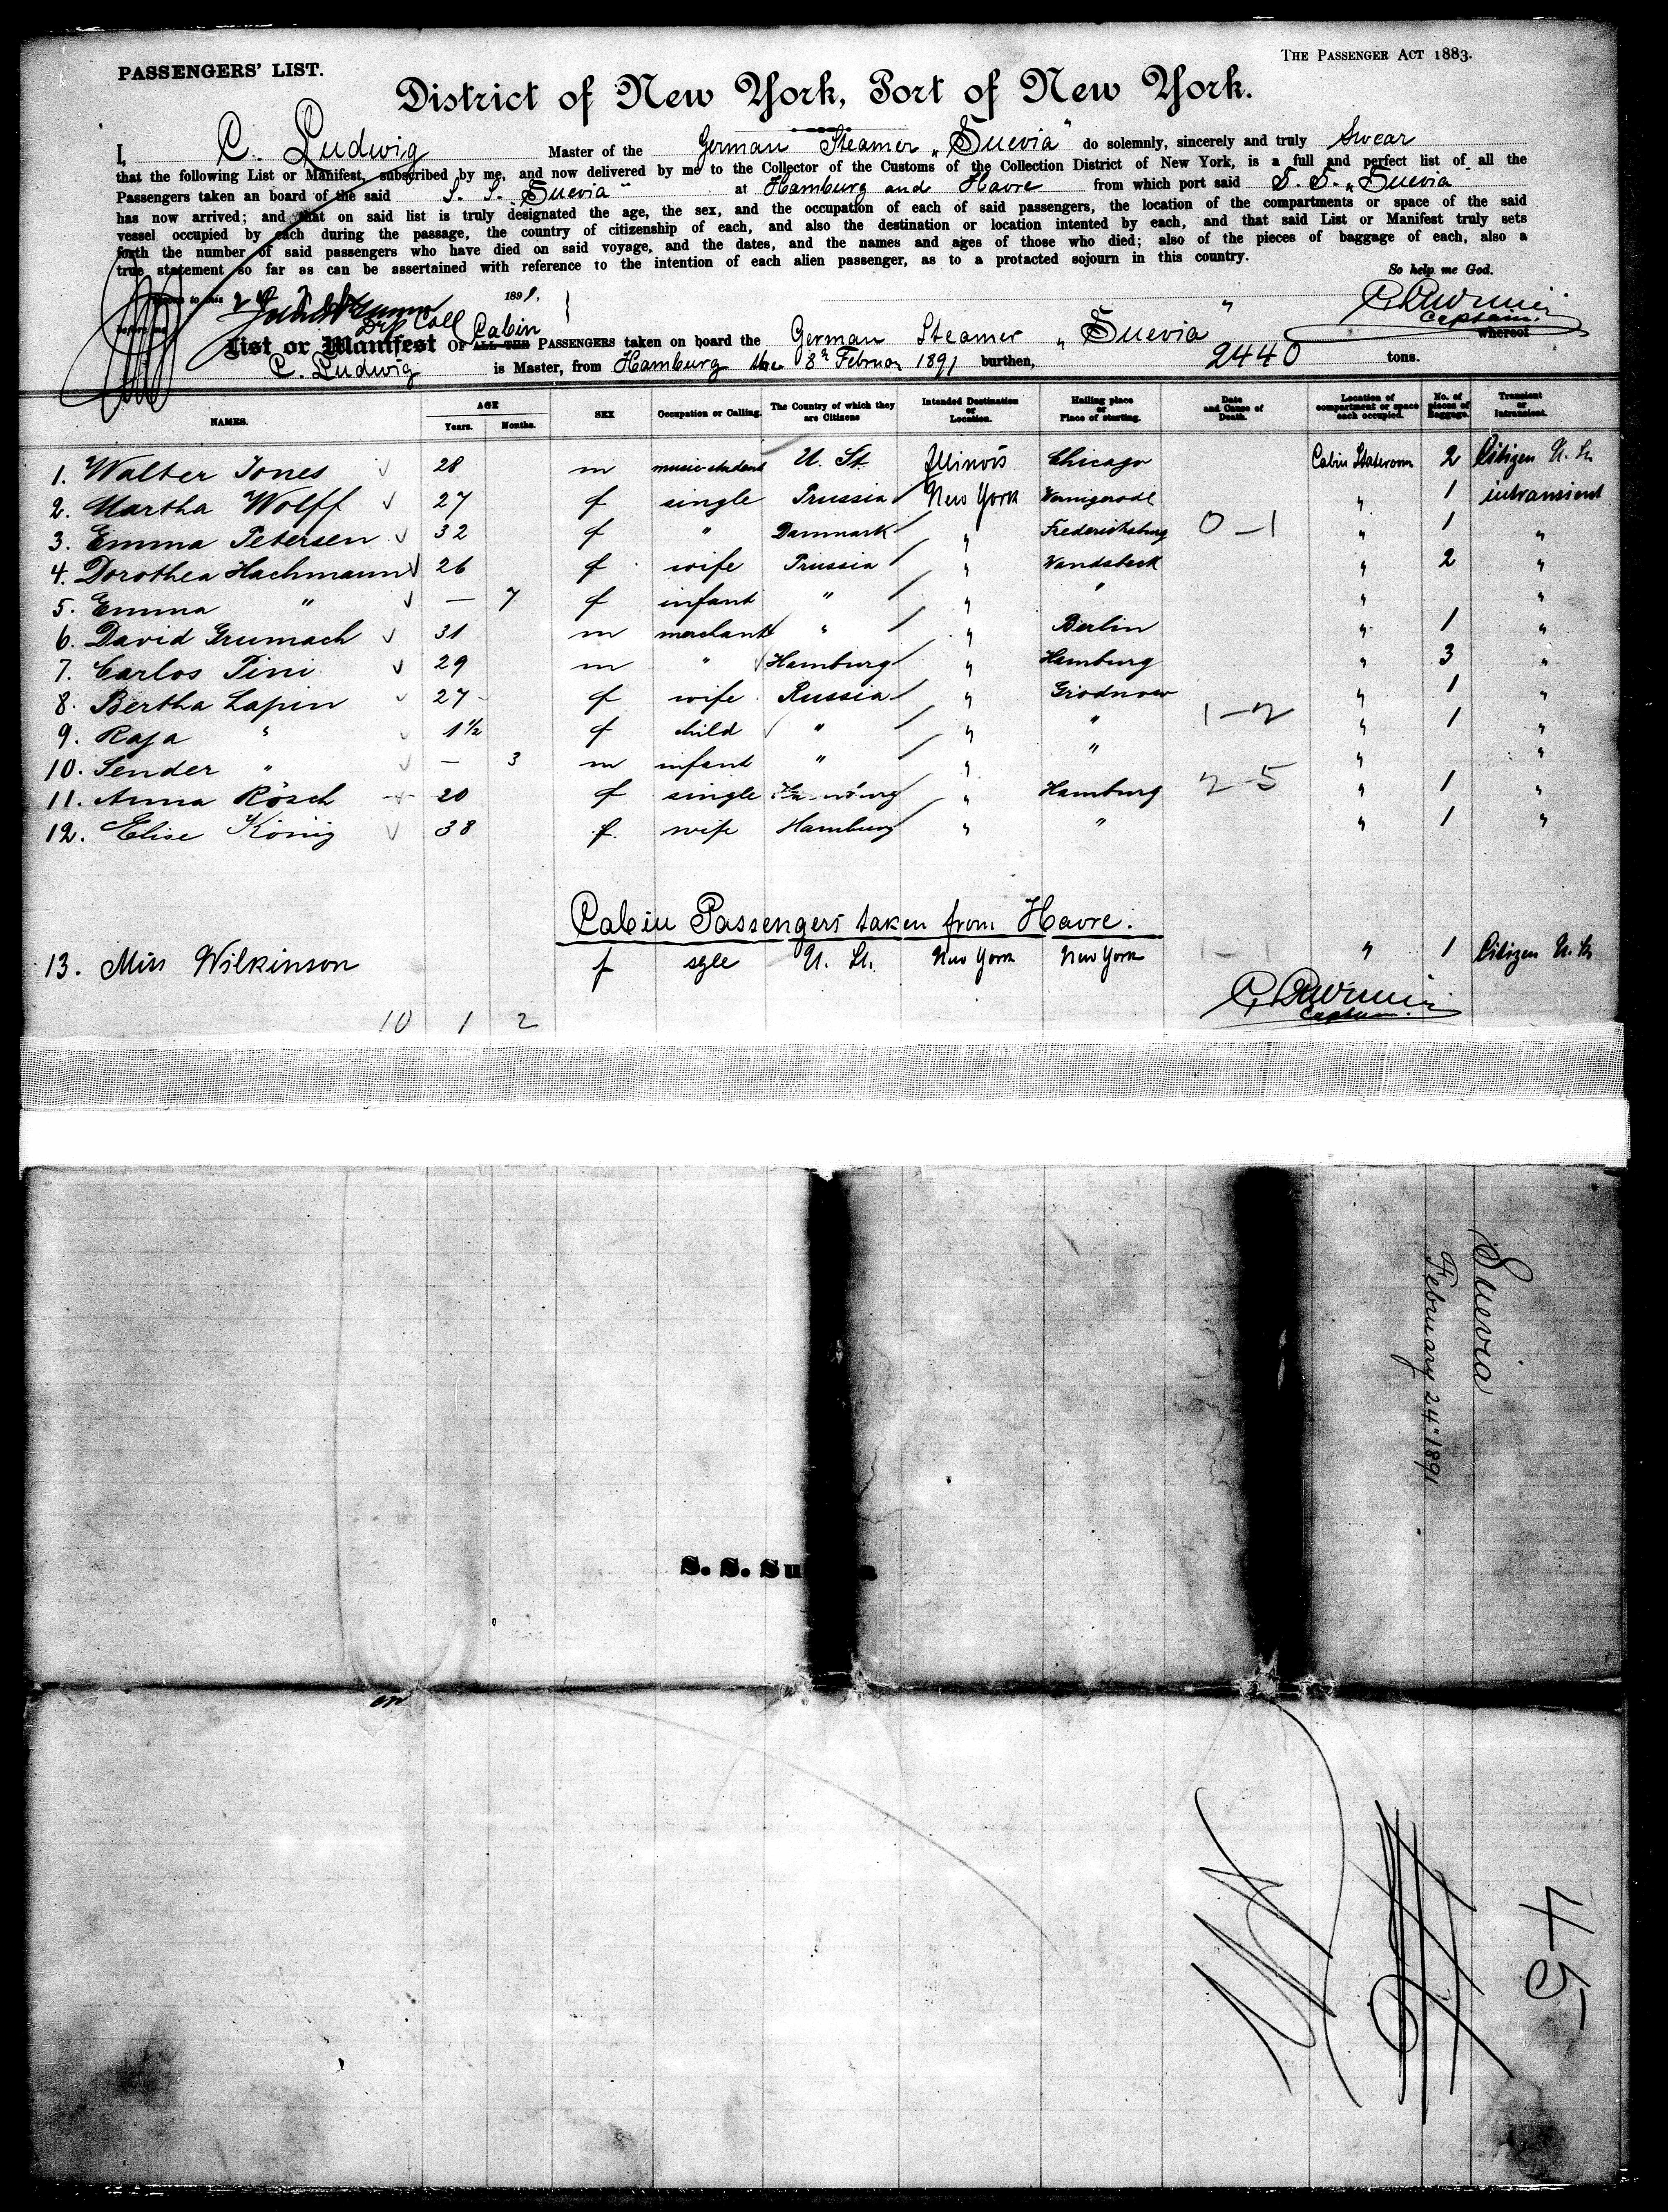 PASSENGERS' LIST.
THE PASSENGER ACT 1883.
District of New York, Port of New York.
I, C. Ludwig Master of the German Steamer „Suevia" do solemnly, sincerely and truly swear
that the following List or Manifest, subscribed by me, and now delivered by me to the Collector of the Customs of the Collection District of New York, is a full and perfect list of all the
Passengers taken an board of the said S. S. Suevia" at Hamburg and Havre from which port said S. S. „Suevia"
has now arrived; and that on said list is truly designated the age, the sex, and the occupation of each of said passengers, the location of the compartments or space of the said
vessel occupied by each during the passage, the country of citizenship of each, and also the destination or location intented by each, and that said List or Manifest truly sets
forth the number of said passengers who have died on said voyage, and the dates, and the names and ages of those who died; also of the pieces of baggage of each, also a
true statement so far as can be assertained with reference to the intention of each alien passenger, as to a protacted sojourn in this country.
So help me God.
to this 24 1891,
before me
Captain.
Dep Coll
List or Manifest OF ALL THE Cabin PASSENGERS taken on board the German Steamer „Suevia" whereof
C. Ludwig is Master, from Hamburg the 8n Februar 1891 burthen, 2440 tons.
NAMES. AGE Years. Months. SEX Occupation or Calling. The Country of which they are Citizens Intended Destination or Location. Hailing place or Place of starting. Date and Cause of Death. Location of compartment or space each occupied. No. of pieces of Baggage. Transient or Intransient.
1. Walter Jones 28 m music-student U. St. Illinois Chicago Cabin Stateroom 2 Citizen U. St.
2. Martha Wolff 27 f single Prussia New York Wernigerode " 1 intransient
3. Emma Petersen 32 f " Danmark " Frederiksburg 0-1 " 1 "
4. Dorothea Hachmann 26 f wife Prussia " Wandsbeck " 2 "
5. Emma " — 7 f infant " " " " "
6. David Grumach 31 m merchant " " Berlin " 1 "
7. Carlos Pini 29 m " Hamburg " Hamburg " 3 "
8. Bertha Lapin 27 f wife Russia " Grodnow " 1 "
9. Raja " 1½ f child " " " 1-2 " 1 "
10. Sender " — 3 m infant " " " " "
11. Anna Rösch 20 f single Hamburg " Hamburg 2-5 " 1 "
12. Elise König 38 f. wife Hamburg " " " 1 "
Cabin Passengers taken from Havre.
13. Miss Wilkinson f sgle U. St. New York New York 1-1 " 1 Citizen U. St.
Captain.
10 1 2
Suevia
February 24" 1891
S. S. Su a
45